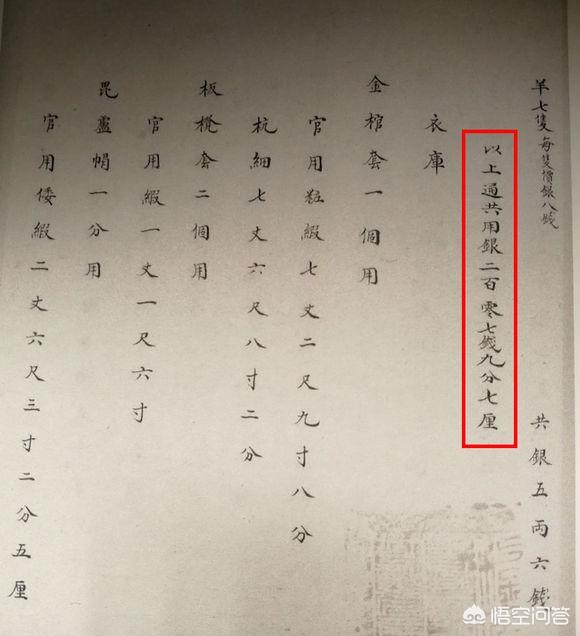 羊七隻每隻價銀八錢 共銀五兩六錢
以上通共用銀二百零七錢九分七厘
衣庫
金棺套一個用
官用粧緞七丈二尺九寸八分
杭細七丈六尺八寸二分
板櫈套二個用
官用緞一丈一尺六寸
毘盧帽一分用
官用倭緞二丈六尺三寸二分五厘
悟空问答